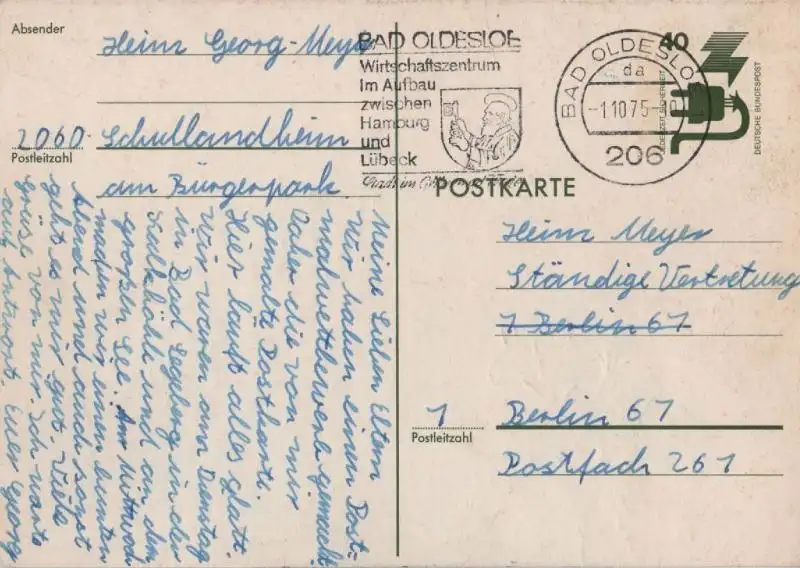 Absender
Heim Georg-Meyer
2060 Schullandheim
Postleitzahl
am Bürgerpark
BAD OLDESLOE
Wirtschaftszentrum
Im Aufbau
zwischen
Hamburg
und
Lübeck
BAD OLDESLOE
da
-1.10.75-
206
40
JEDERZEIT SICHERHEIT
DEUTSCHE BUNDESPOST
POSTKARTE
Heim Meyer
Ständige Vertretung
1 Berlin 61
1 Berlin 61
Postleitzahl
Postfach 261
Meine Lieben Eltern
Wir haben einen Post-
malwettbewerb gemacht
Daher die von mir
gemalte Postkarti.
Hier läuft alles glatt.
Wir waren am Dienstag
in Bad Segeberg in der
Kalkhöhl und an dem
großen See. Am Mittwoch
machen wir einen bunten
Abend und auch sonst
geht es mir gut. Viele
Grüße von mir. Ich warte
auf Antwort. Euer Georg